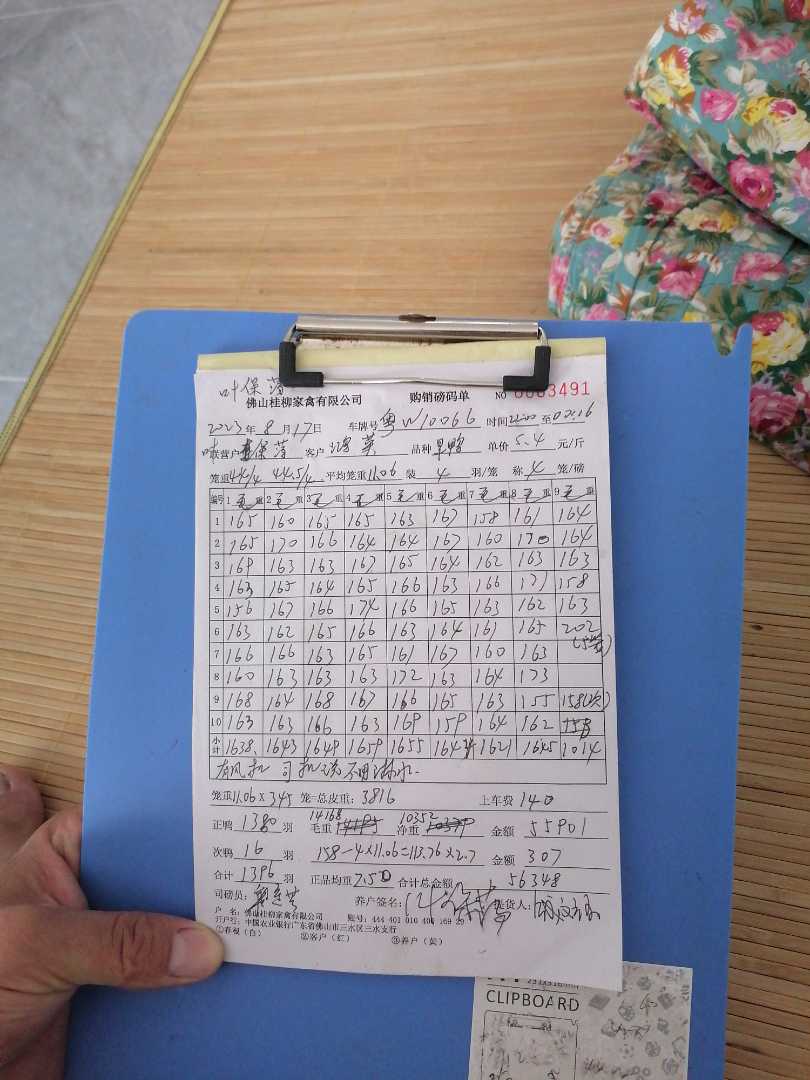 叶保
佛山桂柳家禽有限公司 购销磅码单 NO 0003491
2023年8月17日 车牌号 粤W10066 时间 22:00 至 00:16
联营户 保 客户 品种 旱鸭 单价 5.4 元/斤
笼重 44/4 44.5/4 平均笼重 11.06 装 4 羽/笼 称 4 笼/磅
编号 1 毛重 2 毛重 3 毛重 4 毛重 5 毛重 6 毛重 7 毛重 8 毛重 9 毛重
1 165 160 165 165 163 167 158 161 164
2 165 170 166 164 164 167 160 170 164
3 169 163 163 167 165 164 162 163 163
4 163 165 164 165 166 163 166 171 158
5 156 167 166 174 166 165 163 162 163
6 163 162 165 166 163 164 161 165 202
7 166 166 163 165 161 167 160 163
8 160 163 163 163 172 163 164 173
9 168 164 168 167 166 165 163 155 158(次)
10 163 163 166 163 169 159 164 162 158
小计 1638 1643 1649 1659 1655 1644 1621 1645 1014
有风扣 司机说不用淋水
笼重 11.06×345 笼=总皮重: 3816 上车费 140
14168 10352
正鸭 1380 羽 毛重 净重 金额 55901
次鸭 16 羽 158-4×11.06=113.76×2.7 金额 307
合计 1396 羽 正品均重 7.50 合计总金额 56348
司磅员: 养户签名: 提货人:
户 名: 佛山桂柳家禽有限公司 账号: 444 401 010 400 169 29
开户行: 中国农业银行广东省佛山市三水区三水支行
①存根（白） ②客户（红） ③养户（黄）
CLIPBOARD